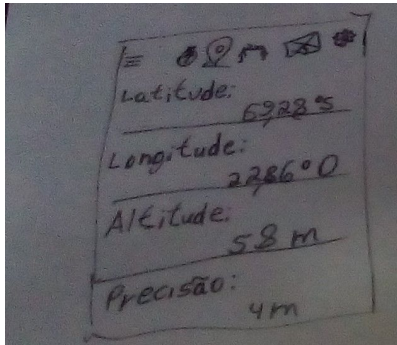 Latitude:
69,28°S
Longitude:
22,86°O
Altitude:
58 m
Precisão:
4m